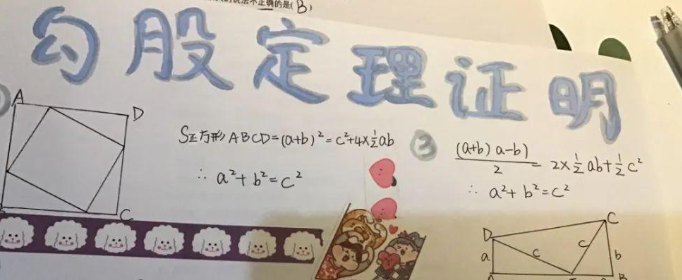 说法不正确的是(B)
勾股定理证明
A
D
C
S正方形ABCD=(a+b)²=c²+4×½ab
∴ a²+b²=c²
③
(a+b)a-b)/2 = 2×½ab+½c²
∴ a²+b²=c²
D
C
a
c
c
b
A
B